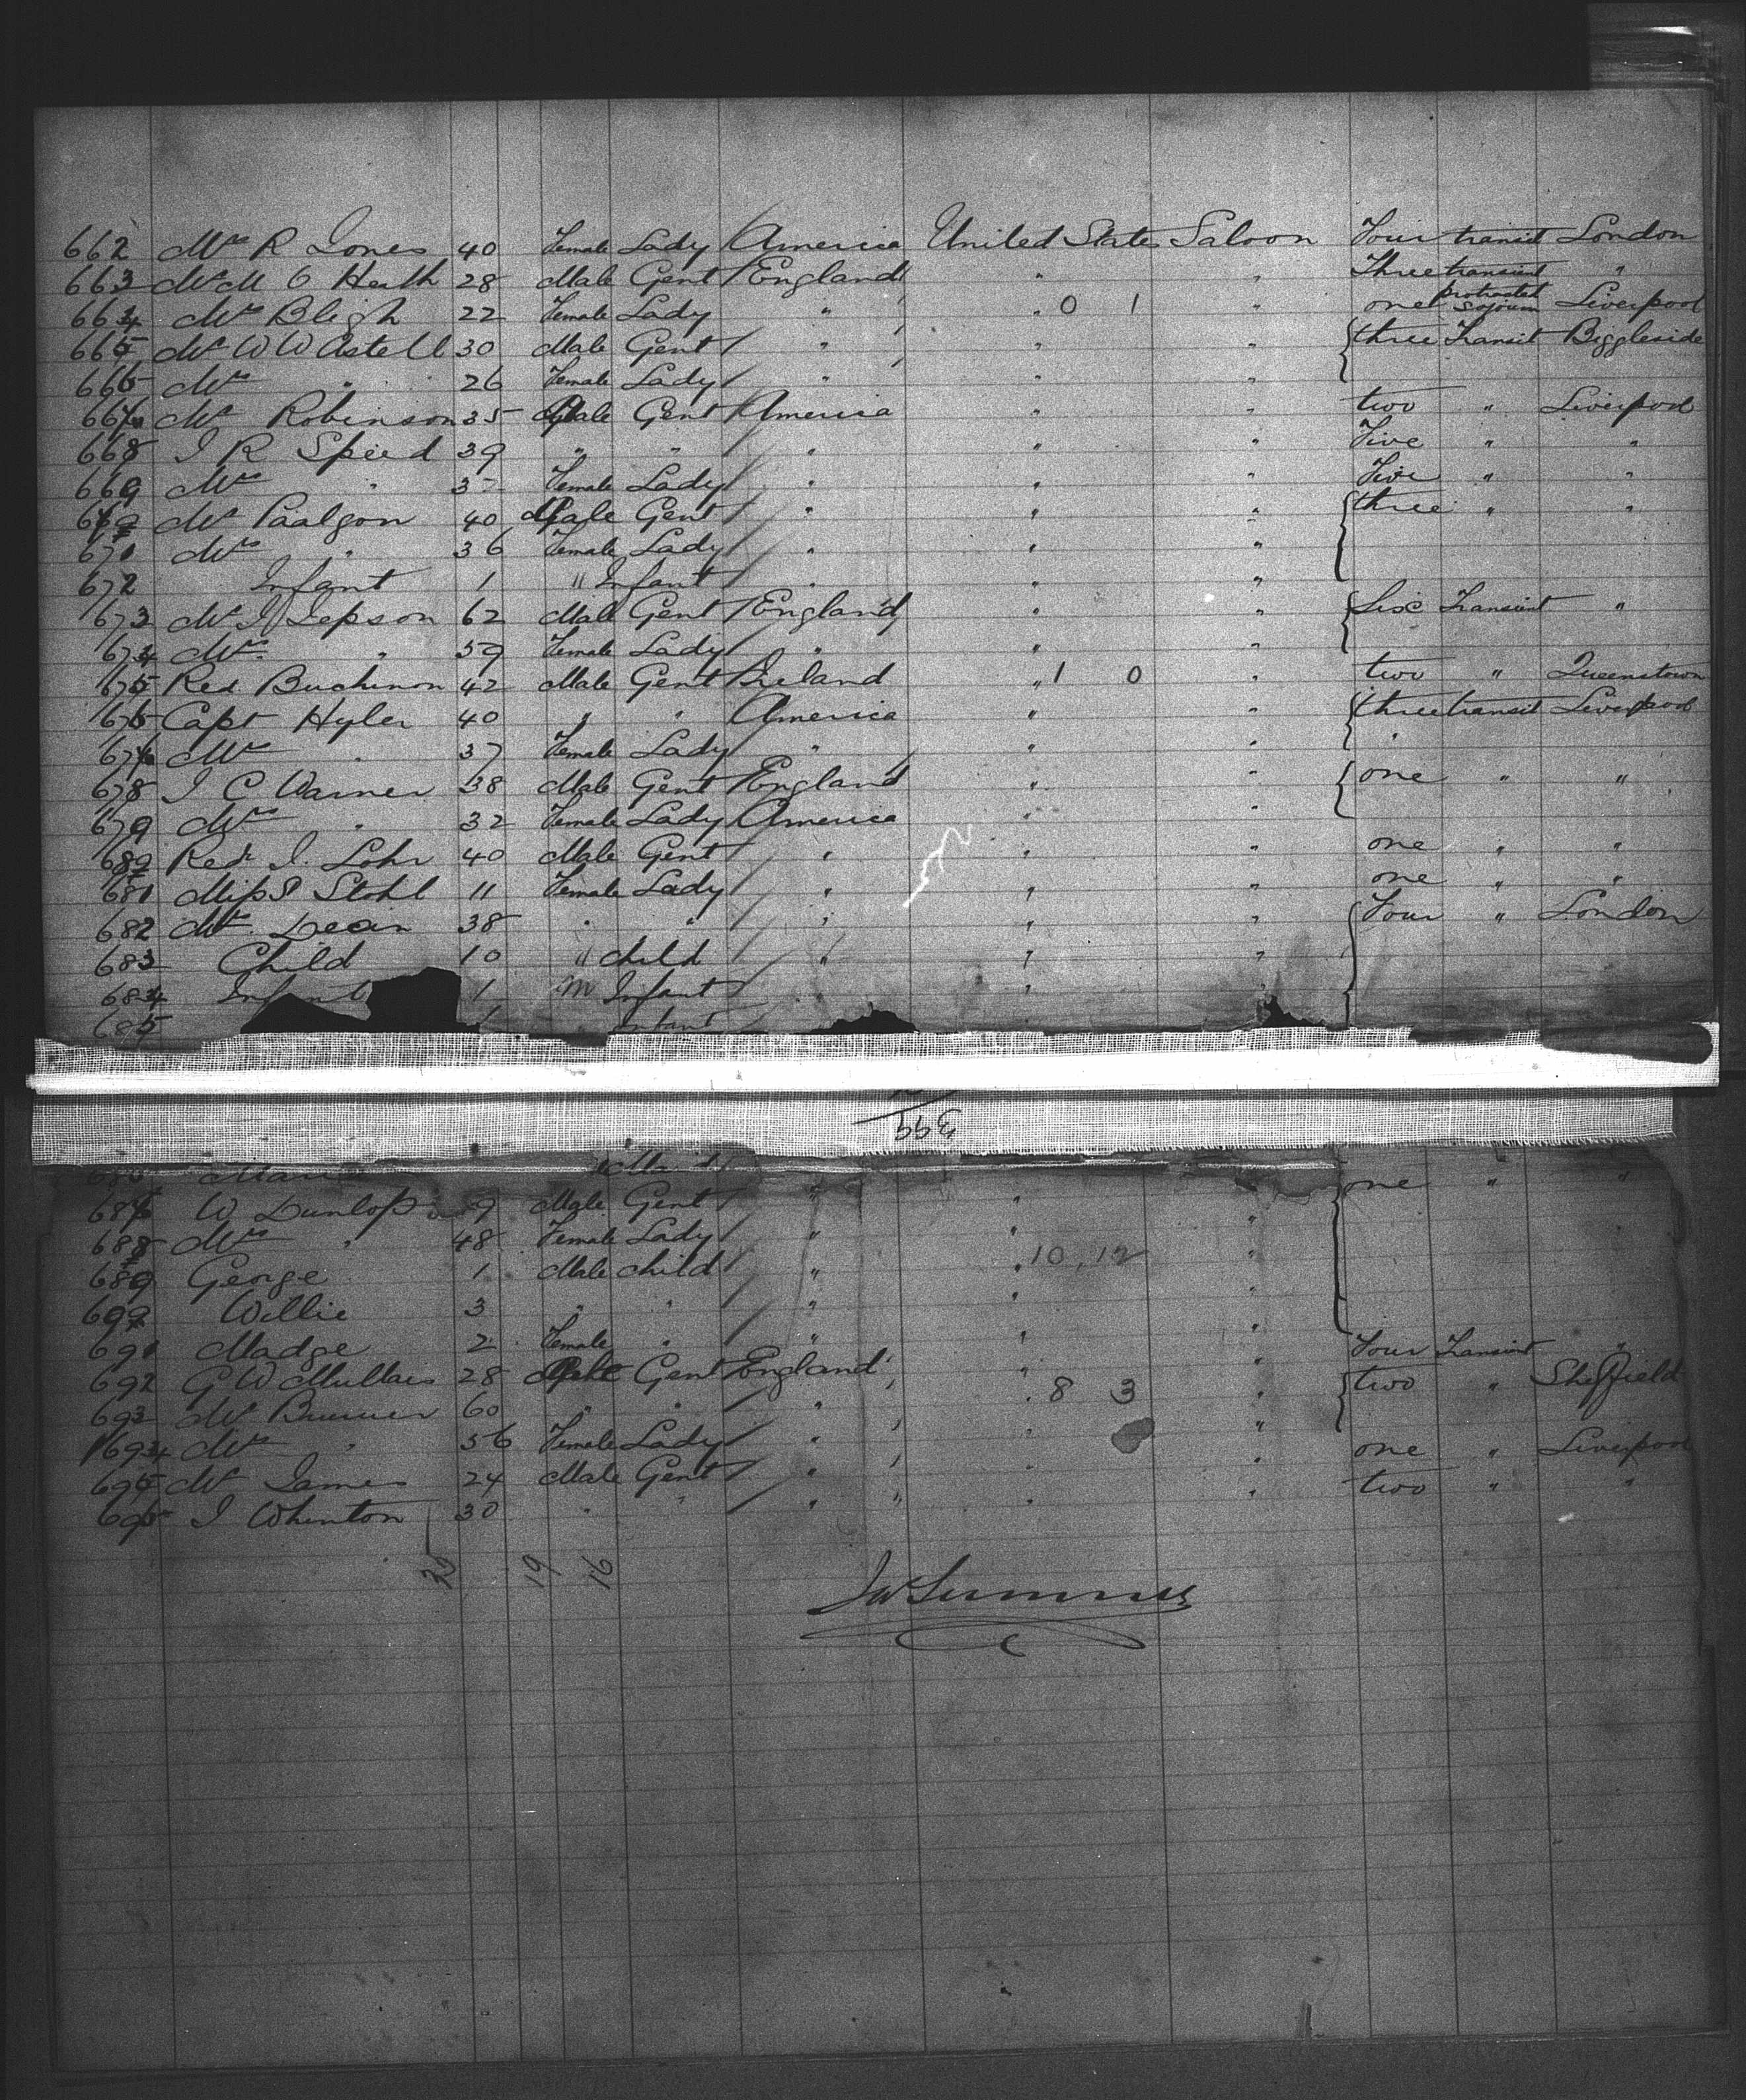 662 Mrs R Jones 40 Female Lady America United States Saloon Four transit London
663 Mr M O Heath 28 Male Gent England " " Three transient "
664 Mrs Bligh 22 Female Lady " " 0 1 " one protracted sojourn Liverpool
665 Mr W W Astell 30 Male Gent " " " three Transit Biggleside
666 Mrs " 26 Female Lady " " "
667 Mr Robinson 35 Male Gent America " " two " Liverpool
668 J R Speed 39 " " " " " Five " "
669 Mrs " Female Lady " " " Five " "
670 Mr Paalgon 40 Male Gent " " " three " "
671 Mrs " 36 Female Lady " " "
672 Infant 1 " Infant " " "
673 Mr J Jepson 62 Male Gent England " " Six Transient "
674 Mrs " 59 Female Lady " " "
675 Red Buchinon 42 Male Gent Ireland " 1 0 " two " Queenstown
676 Capt Hyler 40 " " America " " three transit Liverpool
677 Mrs " 37 Female Lady " " " "
678 J C Warner 38 Male Gent England " " one " "
679 Mrs " 32 Female Lady America "
680 Red J. Lohr 40 Male Gent " " " one " "
681 Miss S Stohl 11 Female Lady " " " one " "
682 Mr. Dean 38 " " " " " Four " London
683 Child 10 " child " " "
684 Infant 1 M Infant " "
685 1 Infant
399
Maid one " "
687 W Dunlop 9 Male Gent " " "
688 Mrs " 48 Female Lady " " "
689 George 1 Male child " " 10, 12 "
690 Willie 3 " " " " "
691 Madge 2 Female " " " " Four Transient "
692 G W Mullais 28 Male Gent England " " two " Sheffield
693 Mr Bruner 60 " " " " 8 3 "
694 Mrs " 56 Female Lady " " " one " Liverpool
695 Mr James 24 Male Gent " " " two " "
696 J Whinton 30 " " " " "
32 19 16